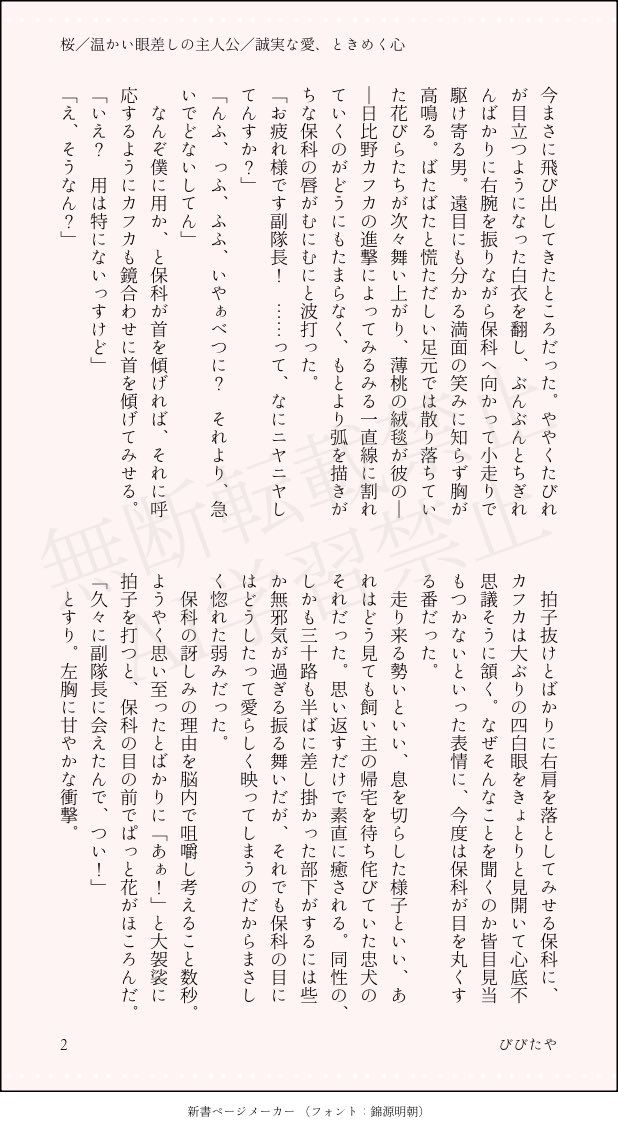 桜／温かい眼差しの主人公／誠実な愛、ときめく心
今まさに飛び出してきたところだった。ややくたびれ
が目立つようになった白衣を翻し、ぶんぶんとちぎれ
んばかりに右腕を振りながら保科へ向かって小走りで
駆け寄る男。遠目にも分かる満面の笑みに知らず胸が
高鳴る。ばたばたと慌ただしい足元では散り落ちてい
た花びらたちが次々舞い上がり、薄桃の絨毯が彼の―
―日比野カフカの進撃によってみるみる一直線に割れ
ていくのがどうにもたまらなく、もとより弧を描きが
ちな保科の唇がむにむにと波打った。
「お疲れ様です副隊長！　……って、なにニヤニヤし
てんすか？」
「んふ、っふ、ふふ、いやぁべつに？　それより、急
いでどないしてん」
　なんぞ僕に用か、と保科が首を傾げれば、それに呼
応するようにカフカも鏡合わせに首を傾げてみせる。
「いえ？　用は特にないっすけど」
「え、そうなん？」
　拍子抜けとばかりに右肩を落としてみせる保科に、
カフカは大ぶりの四白眼をきょとりと見開いて心底不
思議そうに頷く。なぜそんなことを聞くのか皆目見当
もつかないといった表情に、今度は保科が目を丸くす
る番だった。
　走り来る勢いといい、息を切らした様子といい、あ
れはどう見ても飼い主の帰宅を待ち侘びていた忠犬の
それだった。思い返すだけで素直に癒される。同性の、
しかも三十路も半ばに差し掛かった部下がするには些
か無邪気が過ぎる振る舞いだが、それでも保科の目に
はどうしたって愛らしく映ってしまうのだからまさし
く惚れた弱みだった。
　保科の訝しみの理由を脳内で咀嚼し考えること数秒。
ようやく思い至ったとばかりに「あぁ！」と大袈裟に
拍子を打つと、保科の目の前でぱっと花がほころんだ。
「久々に副隊長に会えたんで、つい！」
　とすり。左胸に甘やかな衝撃。
無断転載禁止
AI学習禁止
2
びびたや
新書ページメーカー （フォント：錦源明朝）